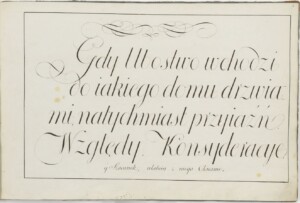 Gdy Ubostwo wchodzi
do iakiego domu drzwia
mi, natychmiast przyiaźń
Względy, Konsyderacye,
y Szacunek, oknem